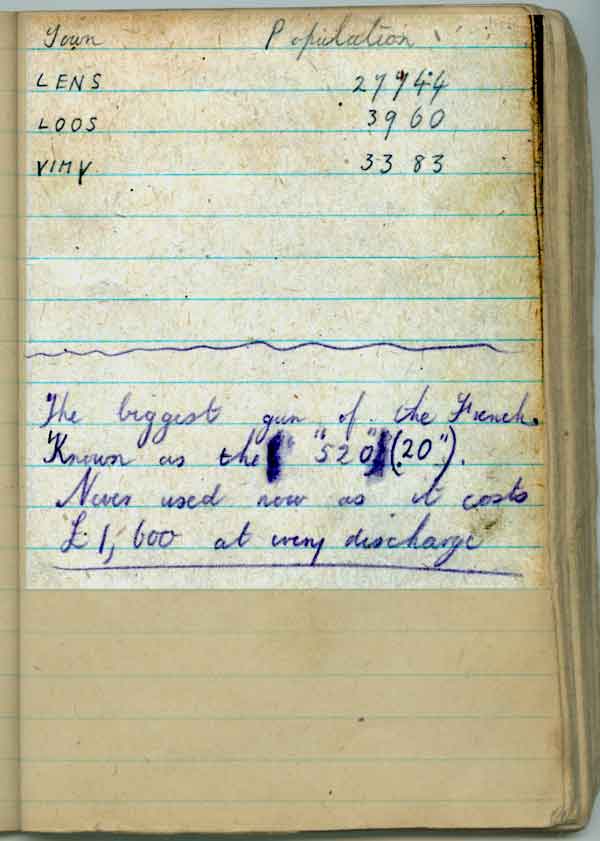 Town Population
LENS 27744
LOOS 3960
VIMY 3383
The biggest gun of the French.
Known as the "520" (20").
Never used now as it costs
£1,600 at every discharge